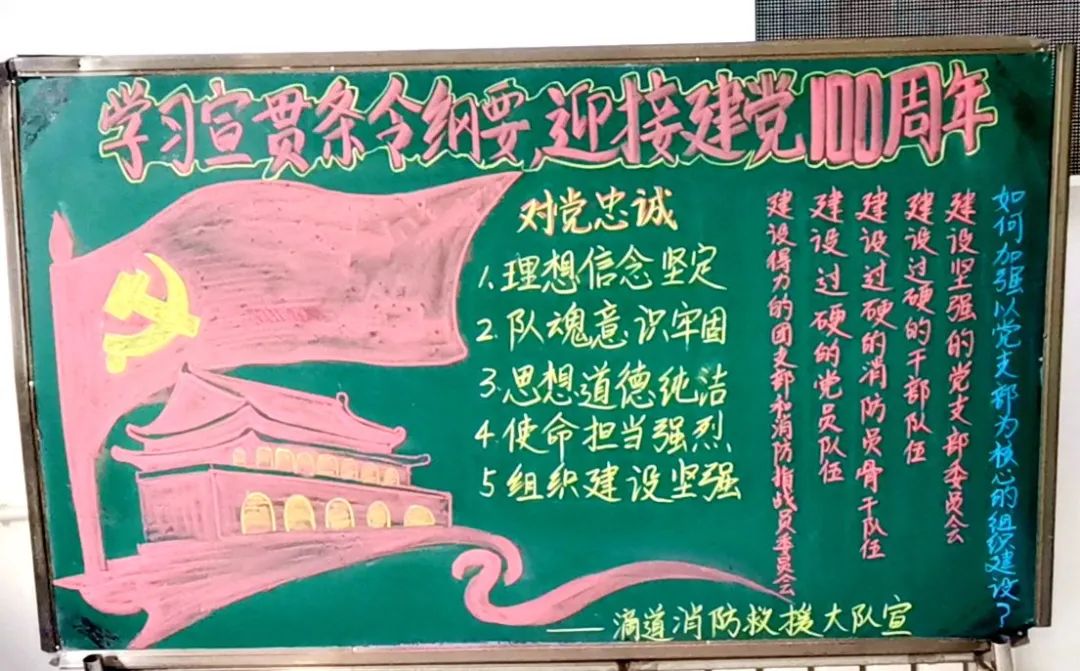 学习宣贯条令纲要,迎接建党100周年
对党忠诚
1.理想信念坚定
2.队魂意识牢固
3.思想道德纯洁
4.使命担当强烈
5组织建设坚强
如何加强以党支部为核心的组织建设?
建设坚强的党支部委员会
建设过硬的干部队伍
建设过硬的消防员骨干队伍
建设过硬的党员队伍
建设得力的团支部和消防指战员委员会
——滴道消防救援大队宣